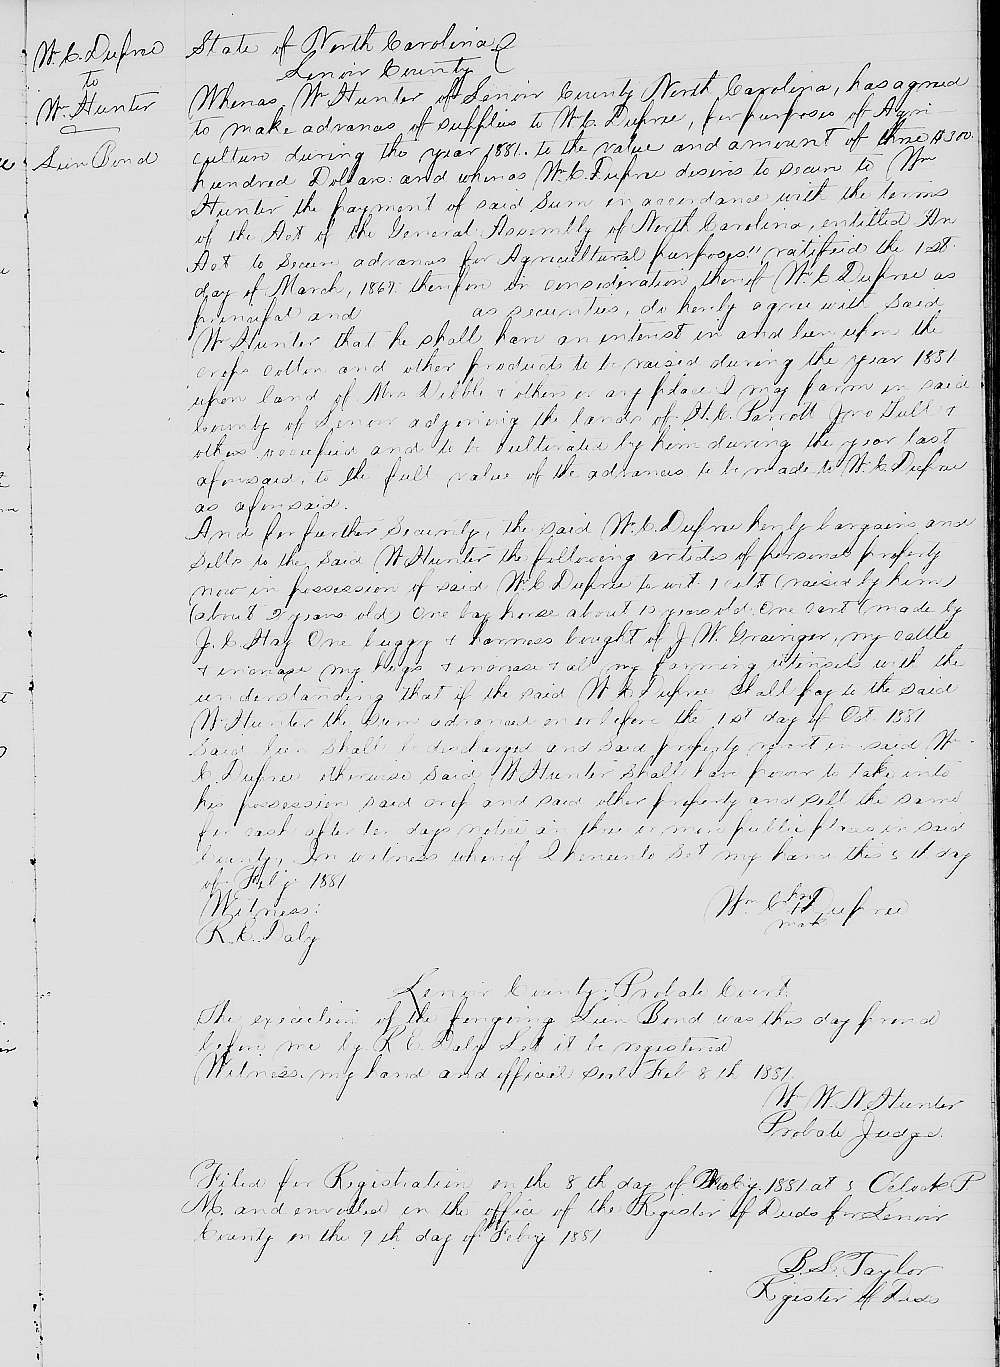 W. C. Dupree
to
Wm Hunter
Lien Bond
State of North Carolina
Lenoir County
Whereas, Wm Hunter of Lenoir County North Carolina, has agreed
to make advances of supplies to W.C. Dupree, for purposes of Agri
culture during the year 1881. to the value and amount of three $300.
hundred Dollars: and whereas W.C. Dupree desires to secure to Wm
Hunter the payment of said Sum in accordance with the terms
of the Act of the General Assembly of North Carolina, entitled "An
Act to Secure advances for Agricultural purposes" ratified the 1st
day of March, 1867 therefore in consideration thereof W.C Dupree as
principal and as securities, do hereby agree with said
Wm Hunter that he shall have an interest in and lien upon the
crops cotton and other products to be raised during the year 1881
upon land of Mrs Dibble & others or any place I may farm in said
County of Lenoir adjoining the lands of Parrott Jno Tull &
others occupied and to be cultivated by him during the year last
aforesaid, to the full value of the advances to be made to W.C Dupree
as aforesaid.
And for further Security, the said W.C. Dupree hereby bargains and
Sells to the, said Wm Hunter the following articles of personal property
now in possession of said W.C Dupree to wit 1 colt (raised by him)
(about 2 years old) One bay horse about 10 years old. One cart (made by
J. C Hay One buggy & harness bought of J. W. Grainger, my cattle
& increase my hogs & increase & all my farming utensils with the
understanding that if the said W C Dupree shall pay to the said
Wm Hunter the sum advanced on or before the 1st day of Oct 1881
said lien shall be discharged and said property revert in said W
C. Dupree otherwise said Wm Hunter shall have power to take into
his possession said crop and said other property and sell the same
for cash after ten days notice in three or more public places in said
County, In witness whereof I hereunto Set my hand this 5 th day
of Feby 1881
Witness:
R. C. Daly
Wm C his X Dupree
mark
Lenoir County, Probate Court.
The execution of the foregoing Lien Bond was this day proved
before me by R C. Daly Let it be registered
Witness my hand and official seal Feb 8 th 1881
W. W. N. Hunter
Probate Judge.
Filed for Registration on the 8 th day of Feby. 1881 at 5 O'clock P
M. and enrolled in the office of the Register of Deeds for Lenoir
County on the 9 th day of Feby 1881
B. S. Taylor
Register of Deeds